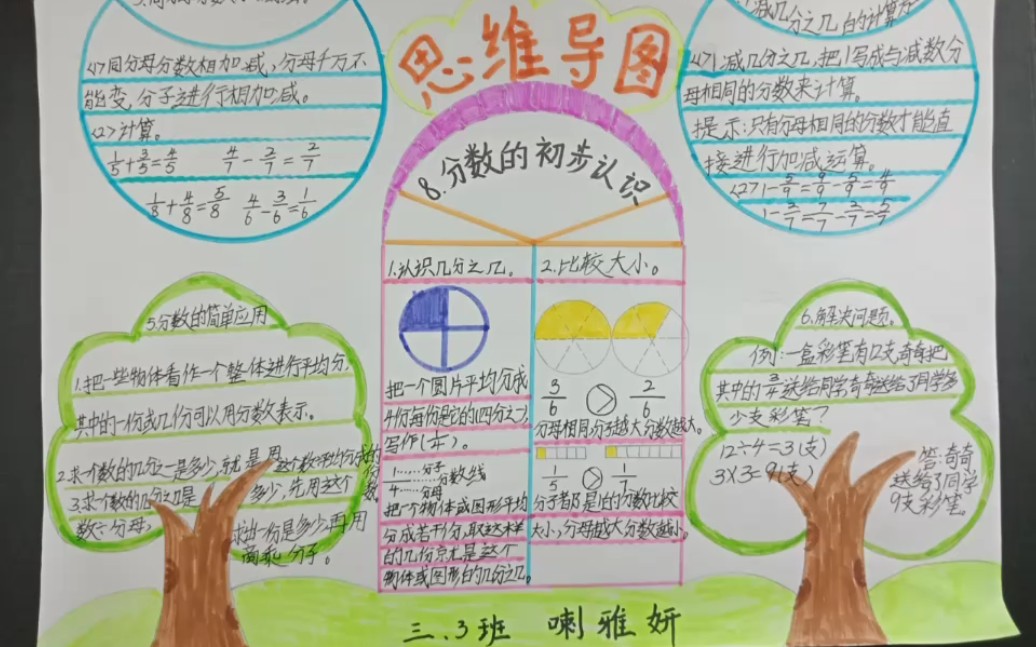 思维导图
8.分数的初步认识
<1>同分母分数相加减,分母千万不
能变,分子进行相加减。
<2>计算。
1/5+3/5=4/5 4/7-2/7=2/7
1/8+4/8=5/8 4/6-3/6=1/6
减几分之几的计算方
<1>1减几分之几,把1写成与减数分
母相同的分数来计算。
提示:只有分母相同的分数才能直
接进行加减运算。
<2>1-5/9=9/9-5/9=4/9
1-2/7=7/7-2/7=5/7
1.认识几分之几。
把一个圆片平均分成
4份每份是它的(四分之一)
写作(1/4)。
1……分子
分数线
4……分母
把一个物体或图形平均
分成若干份,取这样
的几份就是这个
物体或图形的几分之几。
2.比较大小。
3/6 > 2/6
分母相同分子越大分数越大。
1/5 > 1/7
分子都是1的分数比较
大小,分母越大分数越小。
5.分数的简单应用
1.把一些物体看作一个整体进行平均分,
其中的一份或几份可以用分数表示。
2.求一个数的几分之一是多少,就是用这个数平均分成的份数
3.求一个数的几分之几是多少,先用这个
数÷分母,求出一份是多少,再用
商乘分子。
6.解决问题。
例:一盒彩笔有12支奇奇把
其中的3/4送给同学奇奇送给了同学多
少支彩笔?
12÷4=3(支)
3×3=9(支)
答:奇奇
送给了同学
9支彩笔。
三.3班 喇雅妍